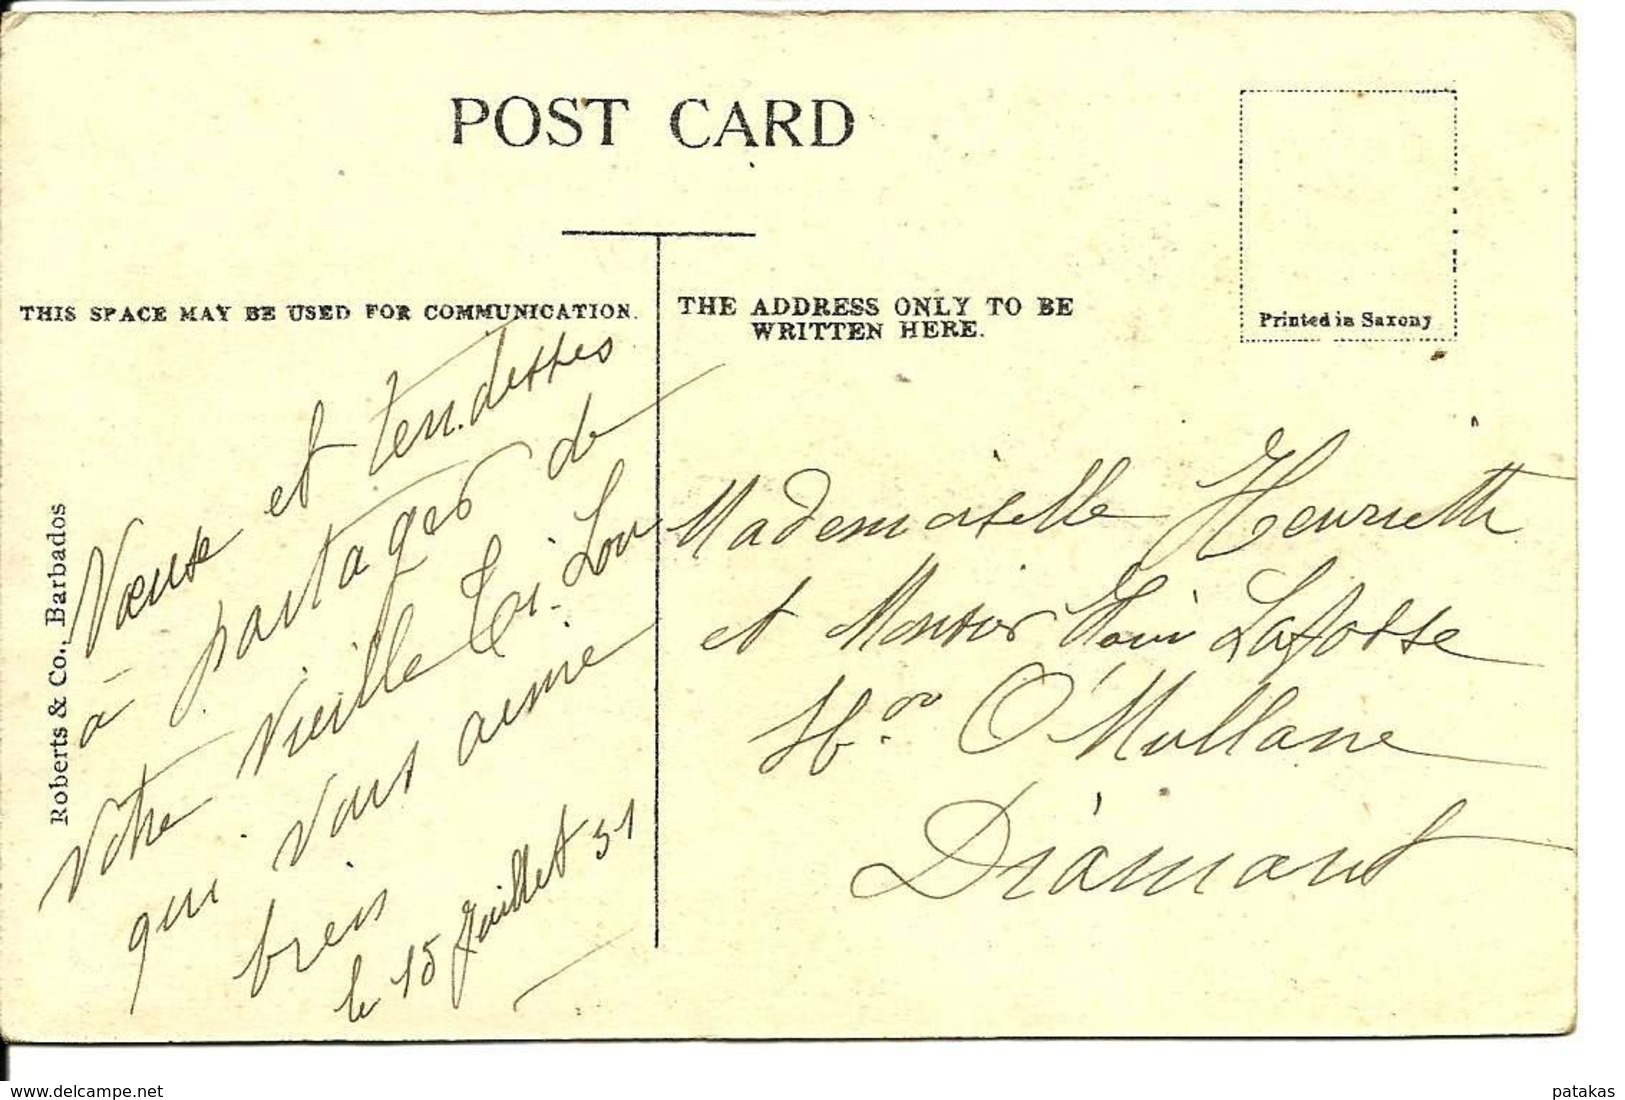 POST CARD
THIS SPACE MAY BE USED FOR COMMUNICATION.
THE ADDRESS ONLY TO BE
WRITTEN HERE.
Printed in Saxony
Roberts & Co., Barbados
Vœux et tendesses
à partager de
Votre Vieille Ti-Lou
qui Vous aime
bien
le 15 Juillet 31
Mademoiselle Henriette
et Lafosse
O'Mullane
Diamant
www.delcampe.net
patakas